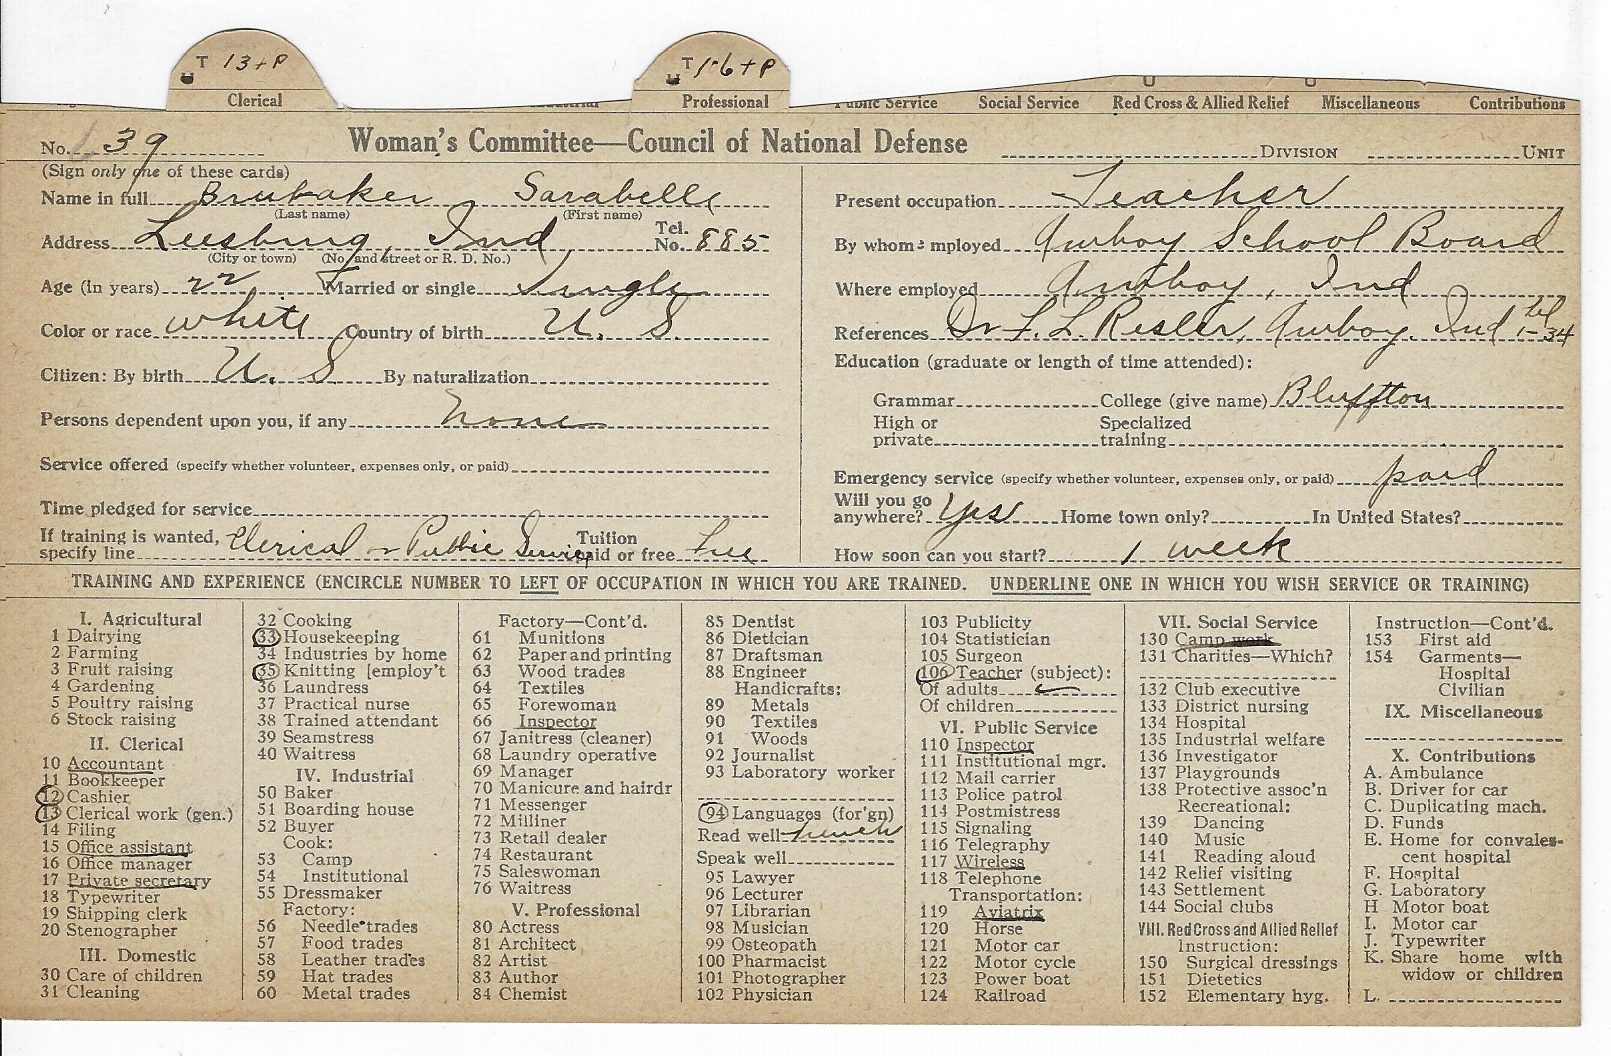 T 13+P
T 1-6+P
Clerical
Professional
Public Service Social Service Red Cross & Allied Relief Miscellaneous Contributions
No. 39
Woman's Committee—Council of National Defense
DIVISION UNIT
(Sign only one of these cards)
Name in full Brubaker Sarabelle
(Last name) (First name)
Address Leesburg, Ind Tel. No. 885
(City or town) (No. and street or R. D. No.)
Age (in years) 22 Married or single Single
Color or race white Country of birth U. S.
Citizen: By birth U. S By naturalization
Persons dependent upon you, if any none
Service offered (specify whether volunteer, expenses only, or paid)
Time pledged for service
If training is wanted, specify line Clerical or Public Service Tuition paid or free Free
Present occupation Teacher
By whom employed Amboy School Board
Where employed Amboy, Ind
References Dr F. L. Resler, Amboy. Ind tel 1-34
Education (graduate or length of time attended):
Grammar College (give name) Bluffton
High or private Specialized training
Emergency service (specify whether volunteer, expenses only, or paid) paid
Will you go anywhere? Yes Home town only? In United States?
How soon can you start? 1 week
TRAINING AND EXPERIENCE (ENCIRCLE NUMBER TO LEFT OF OCCUPATION IN WHICH YOU ARE TRAINED. UNDERLINE ONE IN WHICH YOU WISH SERVICE OR TRAINING)
I. Agricultural
1 Dairying
2 Farming
3 Fruit raising
4 Gardening
5 Poultry raising
6 Stock raising
II. Clerical
10 Accountant
11 Bookkeeper
12 Cashier
13 Clerical work (gen.)
14 Filing
15 Office assistant
16 Office manager
17 Private secretary
18 Typewriter
19 Shipping clerk
20 Stenographer
III. Domestic
30 Care of children
31 Cleaning
32 Cooking
33 Housekeeping
34 Industries by home
35 Knitting [employ't
36 Laundress
37 Practical nurse
38 Trained attendant
39 Seamstress
40 Waitress
IV. Industrial
50 Baker
51 Boarding house
52 Buyer
Cook:
53 Camp
54 Institutional
55 Dressmaker
Factory:
56 Needle trades
57 Food trades
58 Leather trades
59 Hat trades
60 Metal trades
Factory—Cont'd.
61 Munitions
62 Paper and printing
63 Wood trades
64 Textiles
65 Forewoman
66 Inspector
67 Janitress (cleaner)
68 Laundry operative
69 Manager
70 Manicure and hairdr
71 Messenger
72 Milliner
73 Retail dealer
74 Restaurant
75 Saleswoman
76 Waitress
V. Professional
80 Actress
81 Architect
82 Artist
83 Author
84 Chemist
85 Dentist
86 Dietician
87 Draftsman
88 Engineer
Handicrafts:
89 Metals
90 Textiles
91 Woods
92 Journalist
93 Laboratory worker
94 Languages (for'gn)
Read well French
Speak well
95 Lawyer
96 Lecturer
97 Librarian
98 Musician
99 Osteopath
100 Pharmacist
101 Photographer
102 Physician
103 Publicity
104 Statistician
105 Surgeon
106 Teacher (subject):
Of adults
Of children
VI. Public Service
110 Inspector
111 Institutional mgr.
112 Mail carrier
113 Police patrol
114 Postmistress
115 Signaling
116 Telegraphy
117 Wireless
118 Telephone
Transportation:
119 Aviatrix
120 Horse
121 Motor car
122 Motor cycle
123 Power boat
124 Railroad
VII. Social Service
130 Camp work
131 Charities—Which?
132 Club executive
133 District nursing
134 Hospital
135 Industrial welfare
136 Investigator
137 Playgrounds
138 Protective assoc'n
Recreational:
139 Dancing
140 Music
141 Reading aloud
142 Relief visiting
143 Settlement
144 Social clubs
VIII. Red Cross and Allied Relief
Instruction:
150 Surgical dressings
151 Dietetics
152 Elementary hyg.
Instruction—Cont'd.
153 First aid
154 Garments—
Hospital
Civilian
IX. Miscellaneous
X. Contributions
A. Ambulance
B. Driver for car
C. Duplicating mach.
D. Funds
E. Home for convales-
cent hospital
F. Hospital
G. Laboratory
H Motor boat
I. Motor car
J. Typewriter
K. Share home with
widow or children
L.